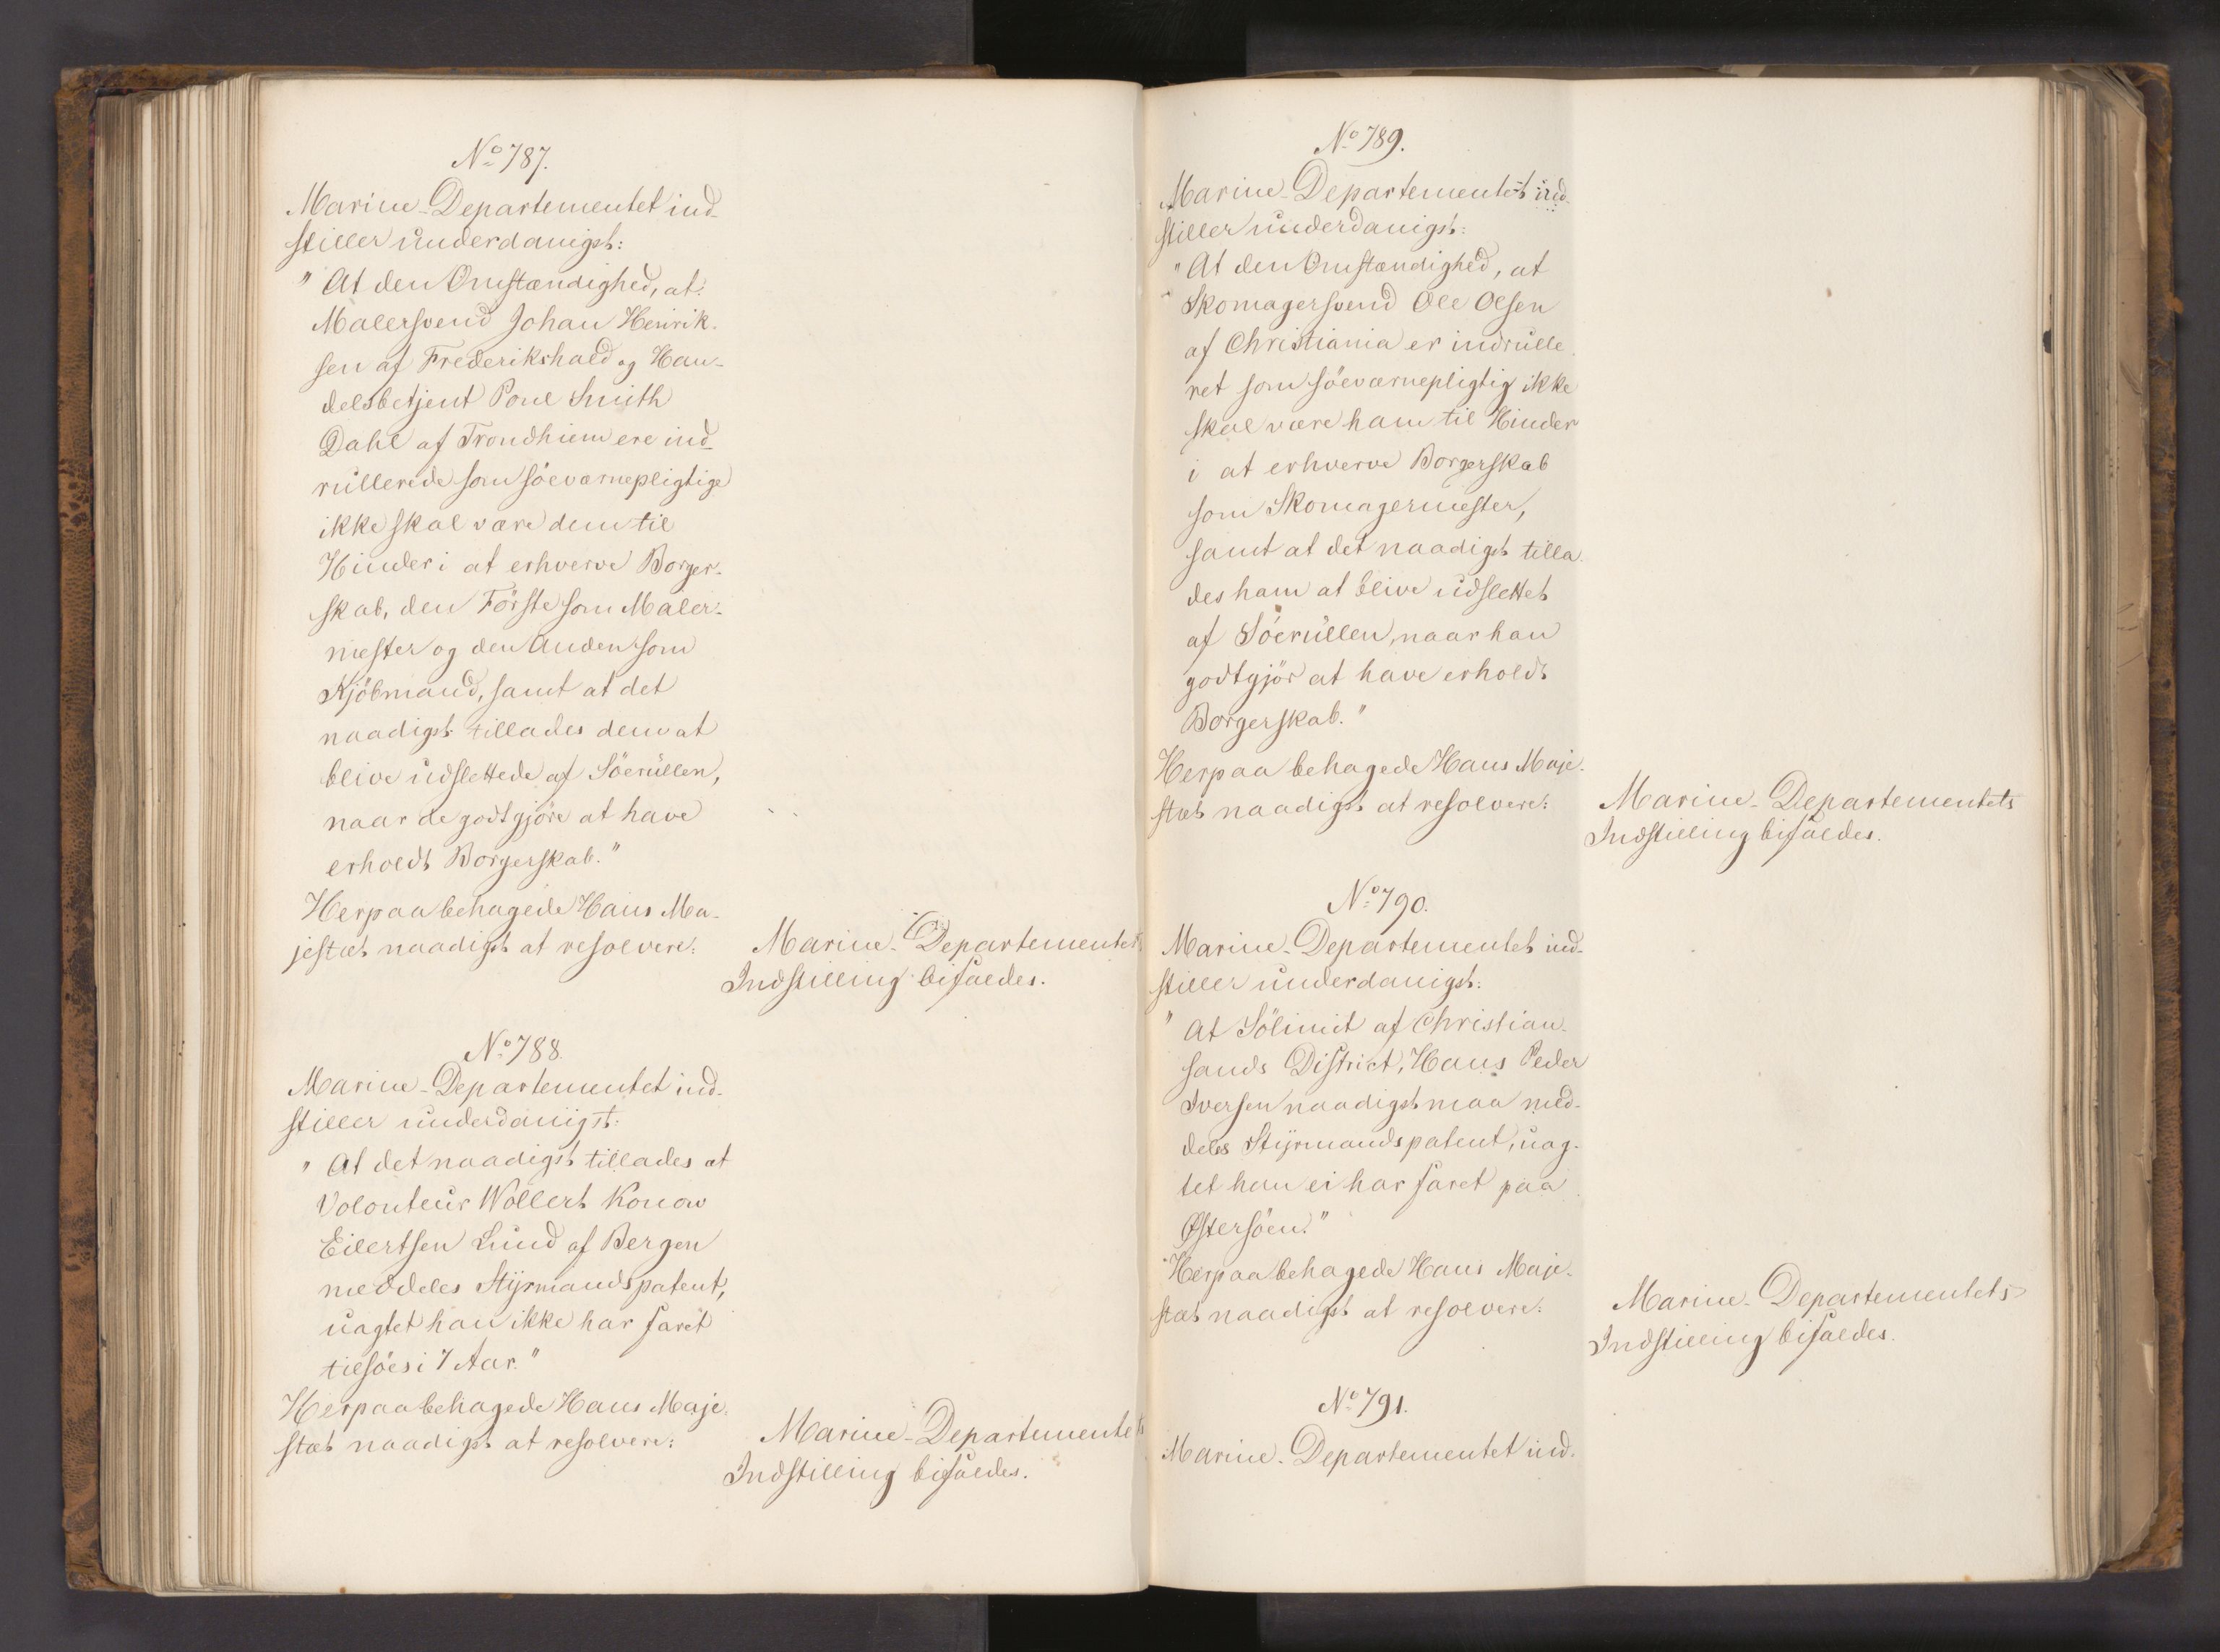 No 787.
Marine-Departementet ind-
stiller underdanigst:
"At den Omstændighed, at
Malersvend Johan Henrik-
sen af Frederikshald og Han-
delsbetjent Poul Smith
Dahl af Trondhiem ere ind-
rullerede som söeværnepligtige
ikke skal være dem til
Hinder i at erhverve Borger-
skab, den Förste som Maler-
mester og den Anden som
Kjöbmand, samt at det
naadigst tillades dem at
blive udslettede af Söerullen,
naar de godtgjöre at have
erholdt Borgerskab."
Herpaa behagede Hans Ma-
jestæt naadigst at resolvere:
Marine-Departementets
Indstilling bifaldes.
No 788.
Marine-Departementet ind-
stiller underdanigst:
"At det naadigst tillades at
Volonteur Wollert Konow
Eilertsen Lund af Bergen
meddeles Styrmandspatent,
uagtet han ikke har faret
tilsöes i 7 Aar."
Herpaa behagede Hans Maje-
stæt naadigst at resolvere:
Marine-Departementets
Indstilling bifaldes.
No 789.
Marine-Departementet ind-
stiller underdanigst:
"At den Omstændighed, at
Skomagersvend Ole Olsen
af Christiania er indrulle-
ret som söeværnepligtig ikke
skal være ham til Hinder
i at erhverve Borgerskab
som Skomagermester,
samt at det naadigst tilla-
des ham at blive udslettet
af Söerullen, naar han
godtgjör at have erholdt
Borgerskab."
Herpaa behagede Hans Maje-
stæt naadigst at resolvere:
Marine-Departementets
Indstilling bifaldes.
No 790.
Marine-Departementet ind-
stiller underdanigst:
"At Sölimit af Christian-
sands District, Hans Peder
Iversen naadigst maa med-
deles Styrmandspatent, uag-
tet han ei har faret paa
Østersöen."
Herpaa behagede Hans Maje-
stæt naadigst at resolvere:
Marine-Departementets
Indstilling bifaldes.
No 791.
Marine-Departementet ind-